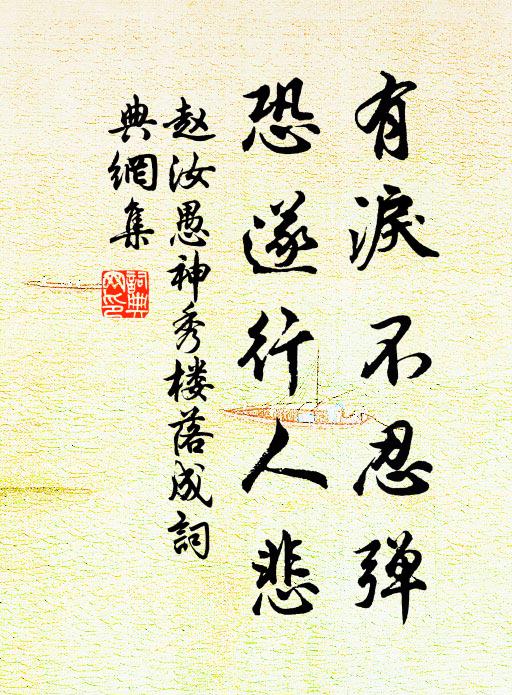 有淚不忍弹
恐遂行人悲
赵汝愚神秀楼落成詞
典網集
詞典网印